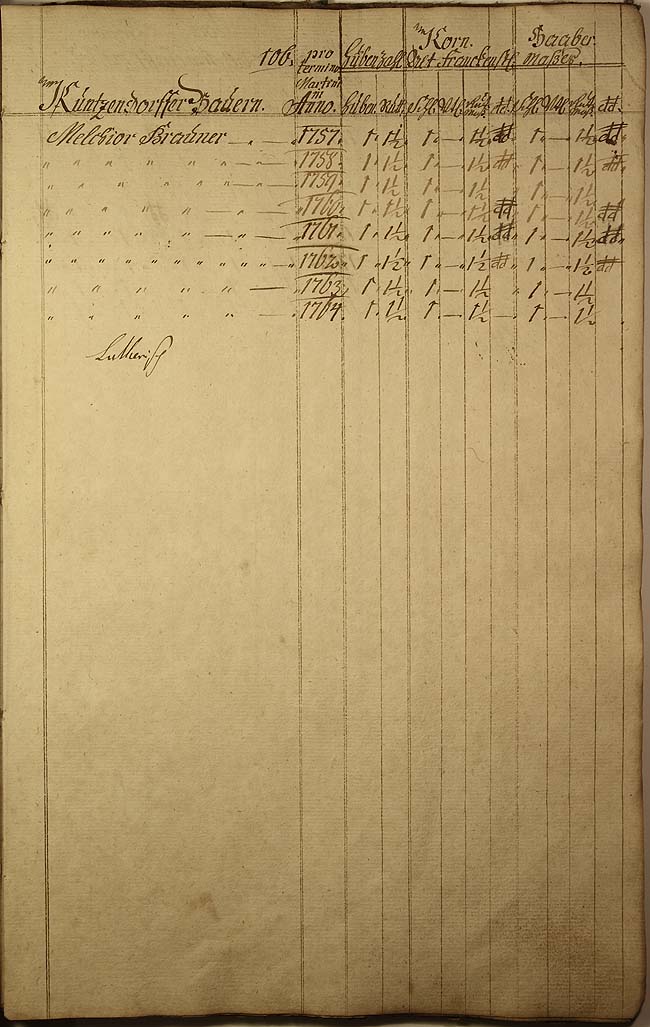 106. pro Korn. Haaber.
termino Hubenzahl Franckenst. Maßes.
Martini
Küntzendorffer Bauern. Anno. Huben. Rut.
Melchior Brauner — „ — „ 1757. 1 „ 1½ 1 „ — „ 1½ dd 1 „ — 1½ dd
„ „ „ „ „ — „ — „ 1758. 1 „ 1½ 1 „ — „ 1½ dd 1 „ — 1½ dd
„ „ „ „ „ — „ — „ 1759. 1 „ 1½ 1 „ — „ 1½ 1 „ — 1½
„ „ „ „ „ — „ — „ 1760. 1 „ 1½ 1 „ — „ 1½ dd 1 „ — 1½ dd
„ „ „ „ „ — „ — „ 1761. 1 „ 1½ 1 „ — „ 1½ dd 1 „ — 1½ dd
„ „ „ „ „ „ „ „ „ „ 1762. 1 „ 1½ 1 „ — „ 1½ dd 1 „ — 1½ dd
„ „ „ „ „ — „ 1763. 1 „ 1½ 1 „ — 1½ 1 „ — 1½
„ „ „ „ „ — „ 1764. 1 „ 1½ 1 „ — 1½ 1 „ — 1½
Lutherisch